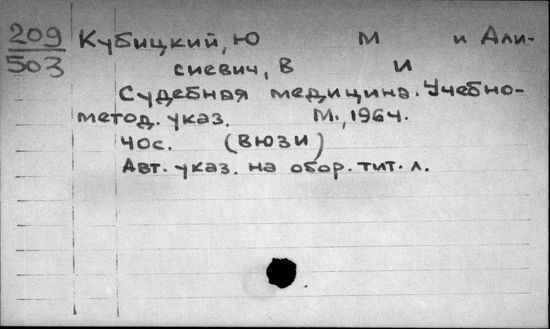 209 Кубицкий, Ю М и Али-
503 сиевич, В И
Судебная медицина. Учебно-
метод. указ. М., 1964.
40с. (ВЮЗИ)
Авт. указ. на обор. тит. л.